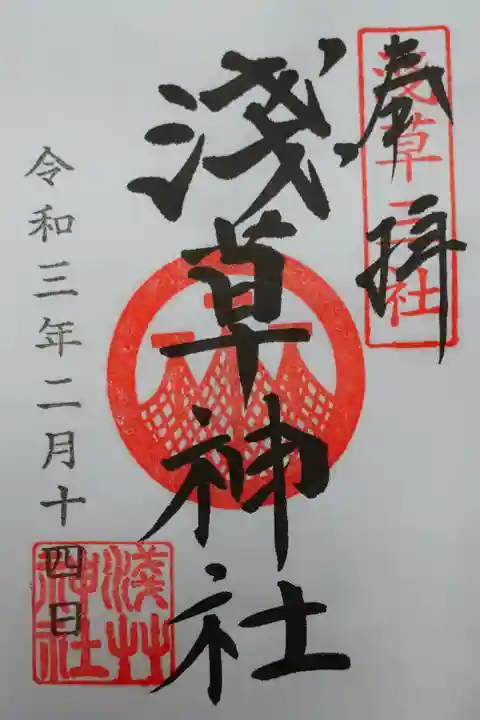 奉拝
淺草三社
淺草神社
令和三年二月十四日
淺草神社